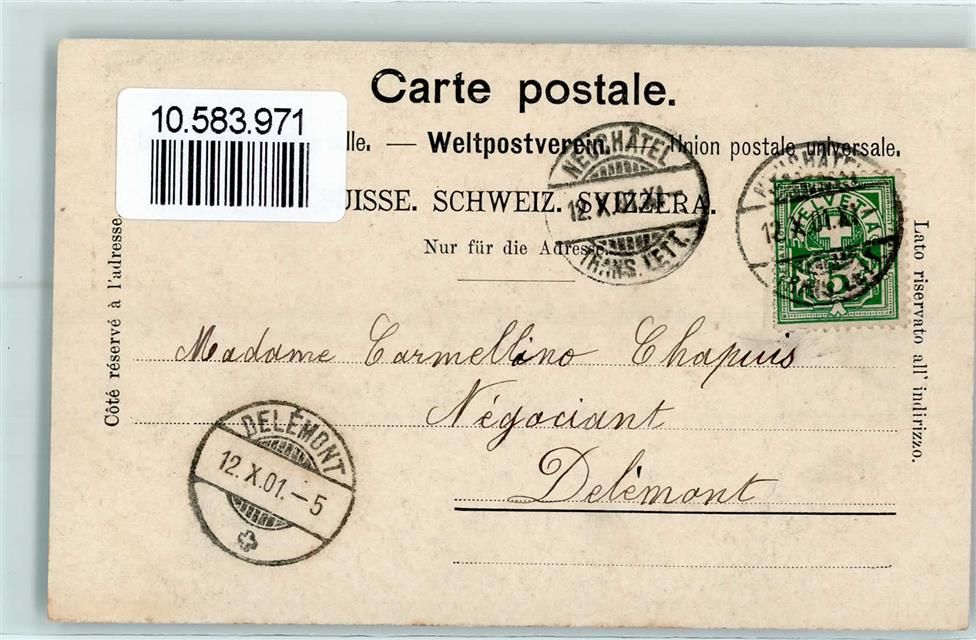 Carte postale.
10.583.971
lle. — Weltpostverein. — Union postale universale.
UISSE. SCHWEIZ. SVIZZERA.
Nur für die Adresse.
NEUCHÂTEL
12.X.01.XI-
TRANS. LETT.
NEUCHÂTEL
12.X.01.
HELVETIA
5
Côté réservé à l'adresse.
Lato riservato all' indirizzo.
Madame Carmellino Chapuis
Négociant
Delémont
DELÉMONT
12.X.01.-5